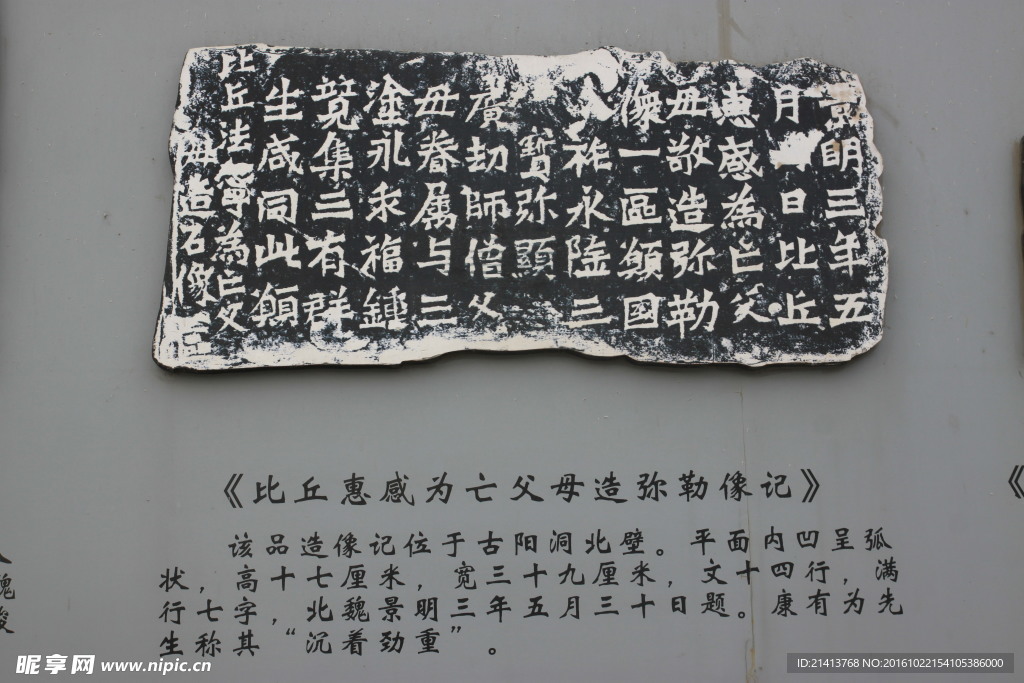 景明三年五
月日比丘
惠感為亡父
母敬造弥勒
像一區願國
祚永隆三
寶弥顯
廣劫師僧父
母眷属与三
塗永乖福鍾
竟集三有群
生咸同此願
比丘法寧為亡父
母造石像
《比丘惠感为亡父母造弥勒像记》
该品造像记位于古阳洞北壁。平面内凹呈弧
状，高十七厘米，宽三十九厘米，文十四行，满
行七字，北魏景明三年五月三十日题。康有为先
生称其“沉着劲重”。
昵享网 www.nipic.cn
ID:21413768 NO:20161022154105386000